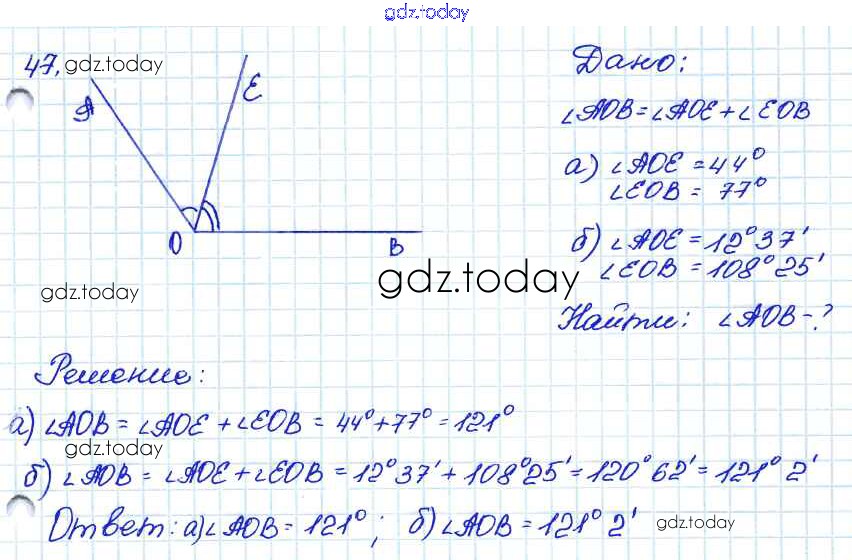 gdz.today
47. gdz.today
A
E
O
B
gdz.today
gdz.today
Дано:
∠AOB = ∠AOE + ∠EOB
а) ∠AOE = 44°
∠EOB = 77°
б) ∠AOE = 12°37'
∠EOB = 108°25'
Найти: ∠AOB - ?
Решение:
а) ∠AOB = ∠AOE + ∠EOB = 44° + 77° = 121°
gdz.today
б) ∠AOB = ∠AOE + ∠EOB = 12°37' + 108°25' = 120°62' = 121°2'
Ответ: а) ∠AOB = 121°; б) ∠AOB = 121°2' gdz.today